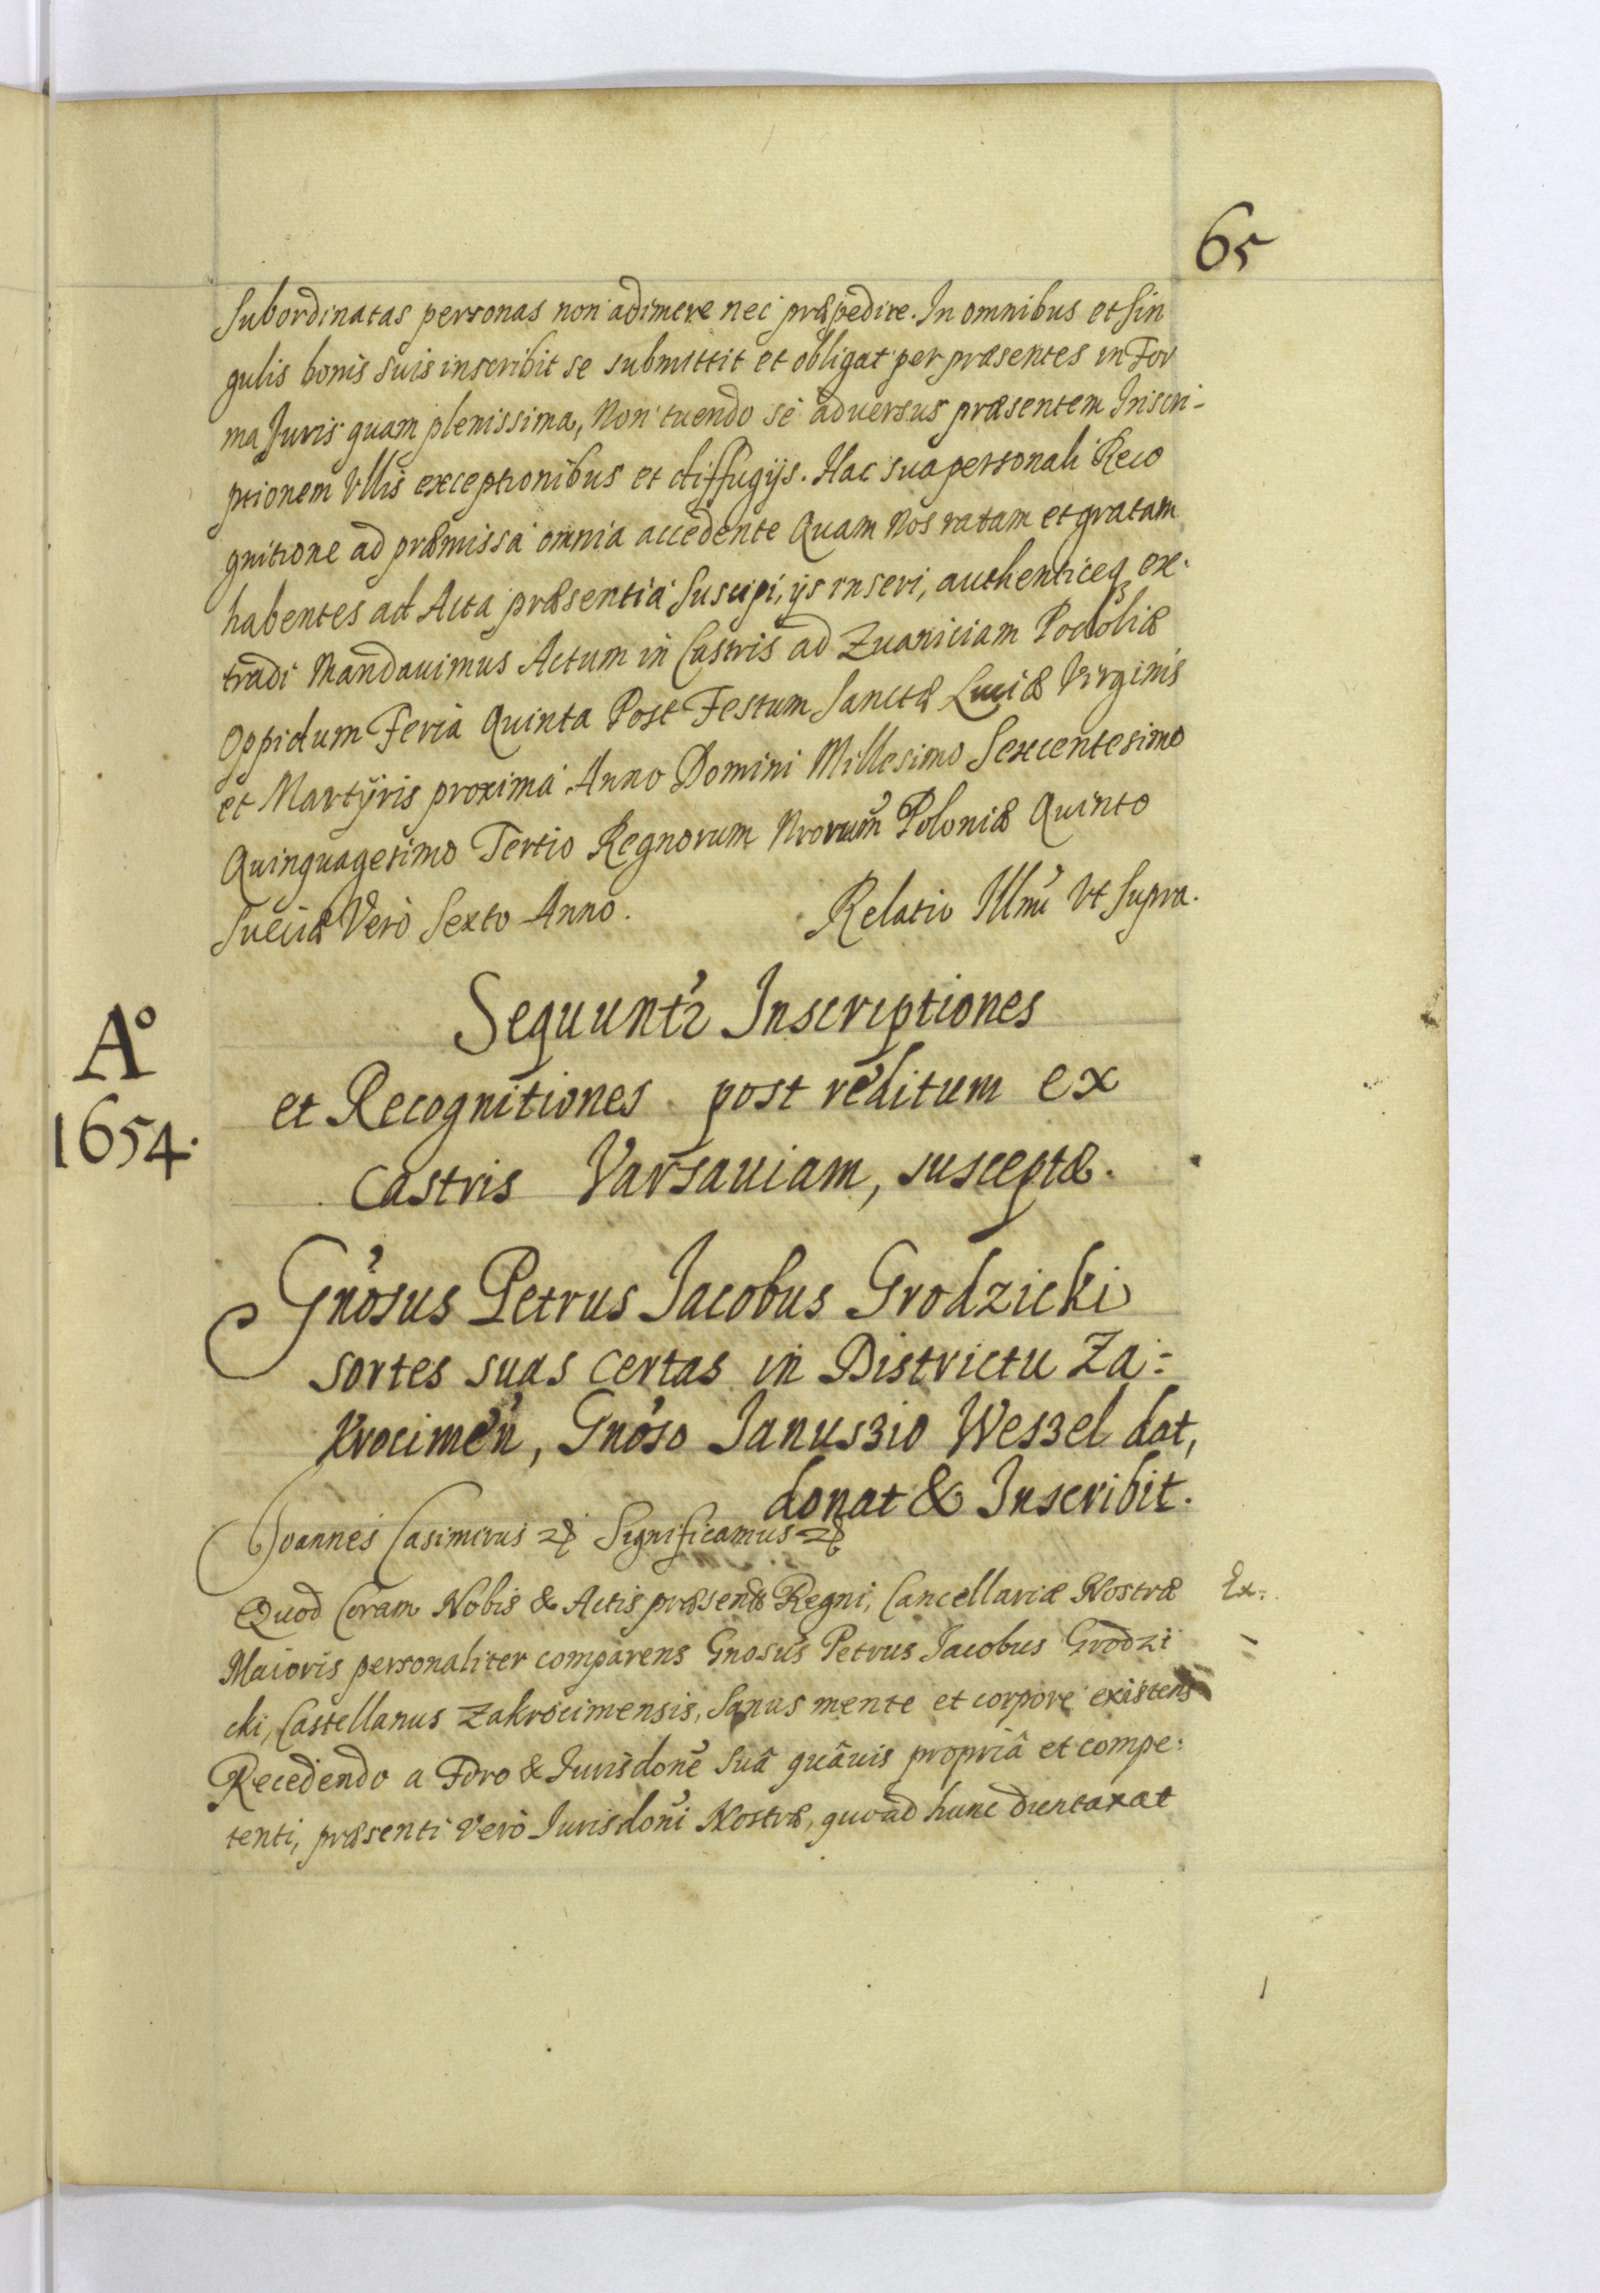 65
subordinatas personas non adimere nec præpedire. In omnibus et sin
gulis bonis suis inscribit se submittit et obligat per præsentes in For
ma Juris quam plenissima, Non tuendo se adversus præsentem Inscri-
ptionem Ullis exceptionibus et diffugijs. Hac sua personali Reco
gnitione ad præmissa omnia accedente Quam Nos ratam et gratam
habentes ad Acta præsentia suscipi, ijs inseri, authenticeq ex-
tradi Mandavimus Actum in Castris ad Zvaniciam Podoliæ
Oppidum Feria Quinta Post Festum Sanctæ Luciæ Virginis
et Martyris proxima Anno Domini Millesimo Sexcentesimo
Quinquagesimo Tertio Regnorum Nrorum Poloniæ Quinto
Sueciæ Verò Sexto Anno.
Relatio Illmi Vt supra.
Aº
1654.
Sequuntr Inscriptiones
et Recognitiones post reditum ex
castris Varsaviam, susceptæ.
Gnosus Petrus Jacobus Grodzicki
sortes suas certas in Districtu Za-
krocimen, Gnoso Januszio Weszel dat,
donat & Inscribit.
Joannes Casimirus Significamus
Quod Coram Nobis & Actis præsentib Regni, Cancellariæ Nostræ
Ex:
Maioris personaliter comparens Gnosus Petrus Jacobus Grodzi
cki, Castellanus Zakrocimensis, sanus mente et corpore existens
Recedendo a Foro & Jurisdone suâ quâvis propriâ et compe-
tenti, præsenti verò Jurisdoni Nostræ, quoad hunc duntaxat